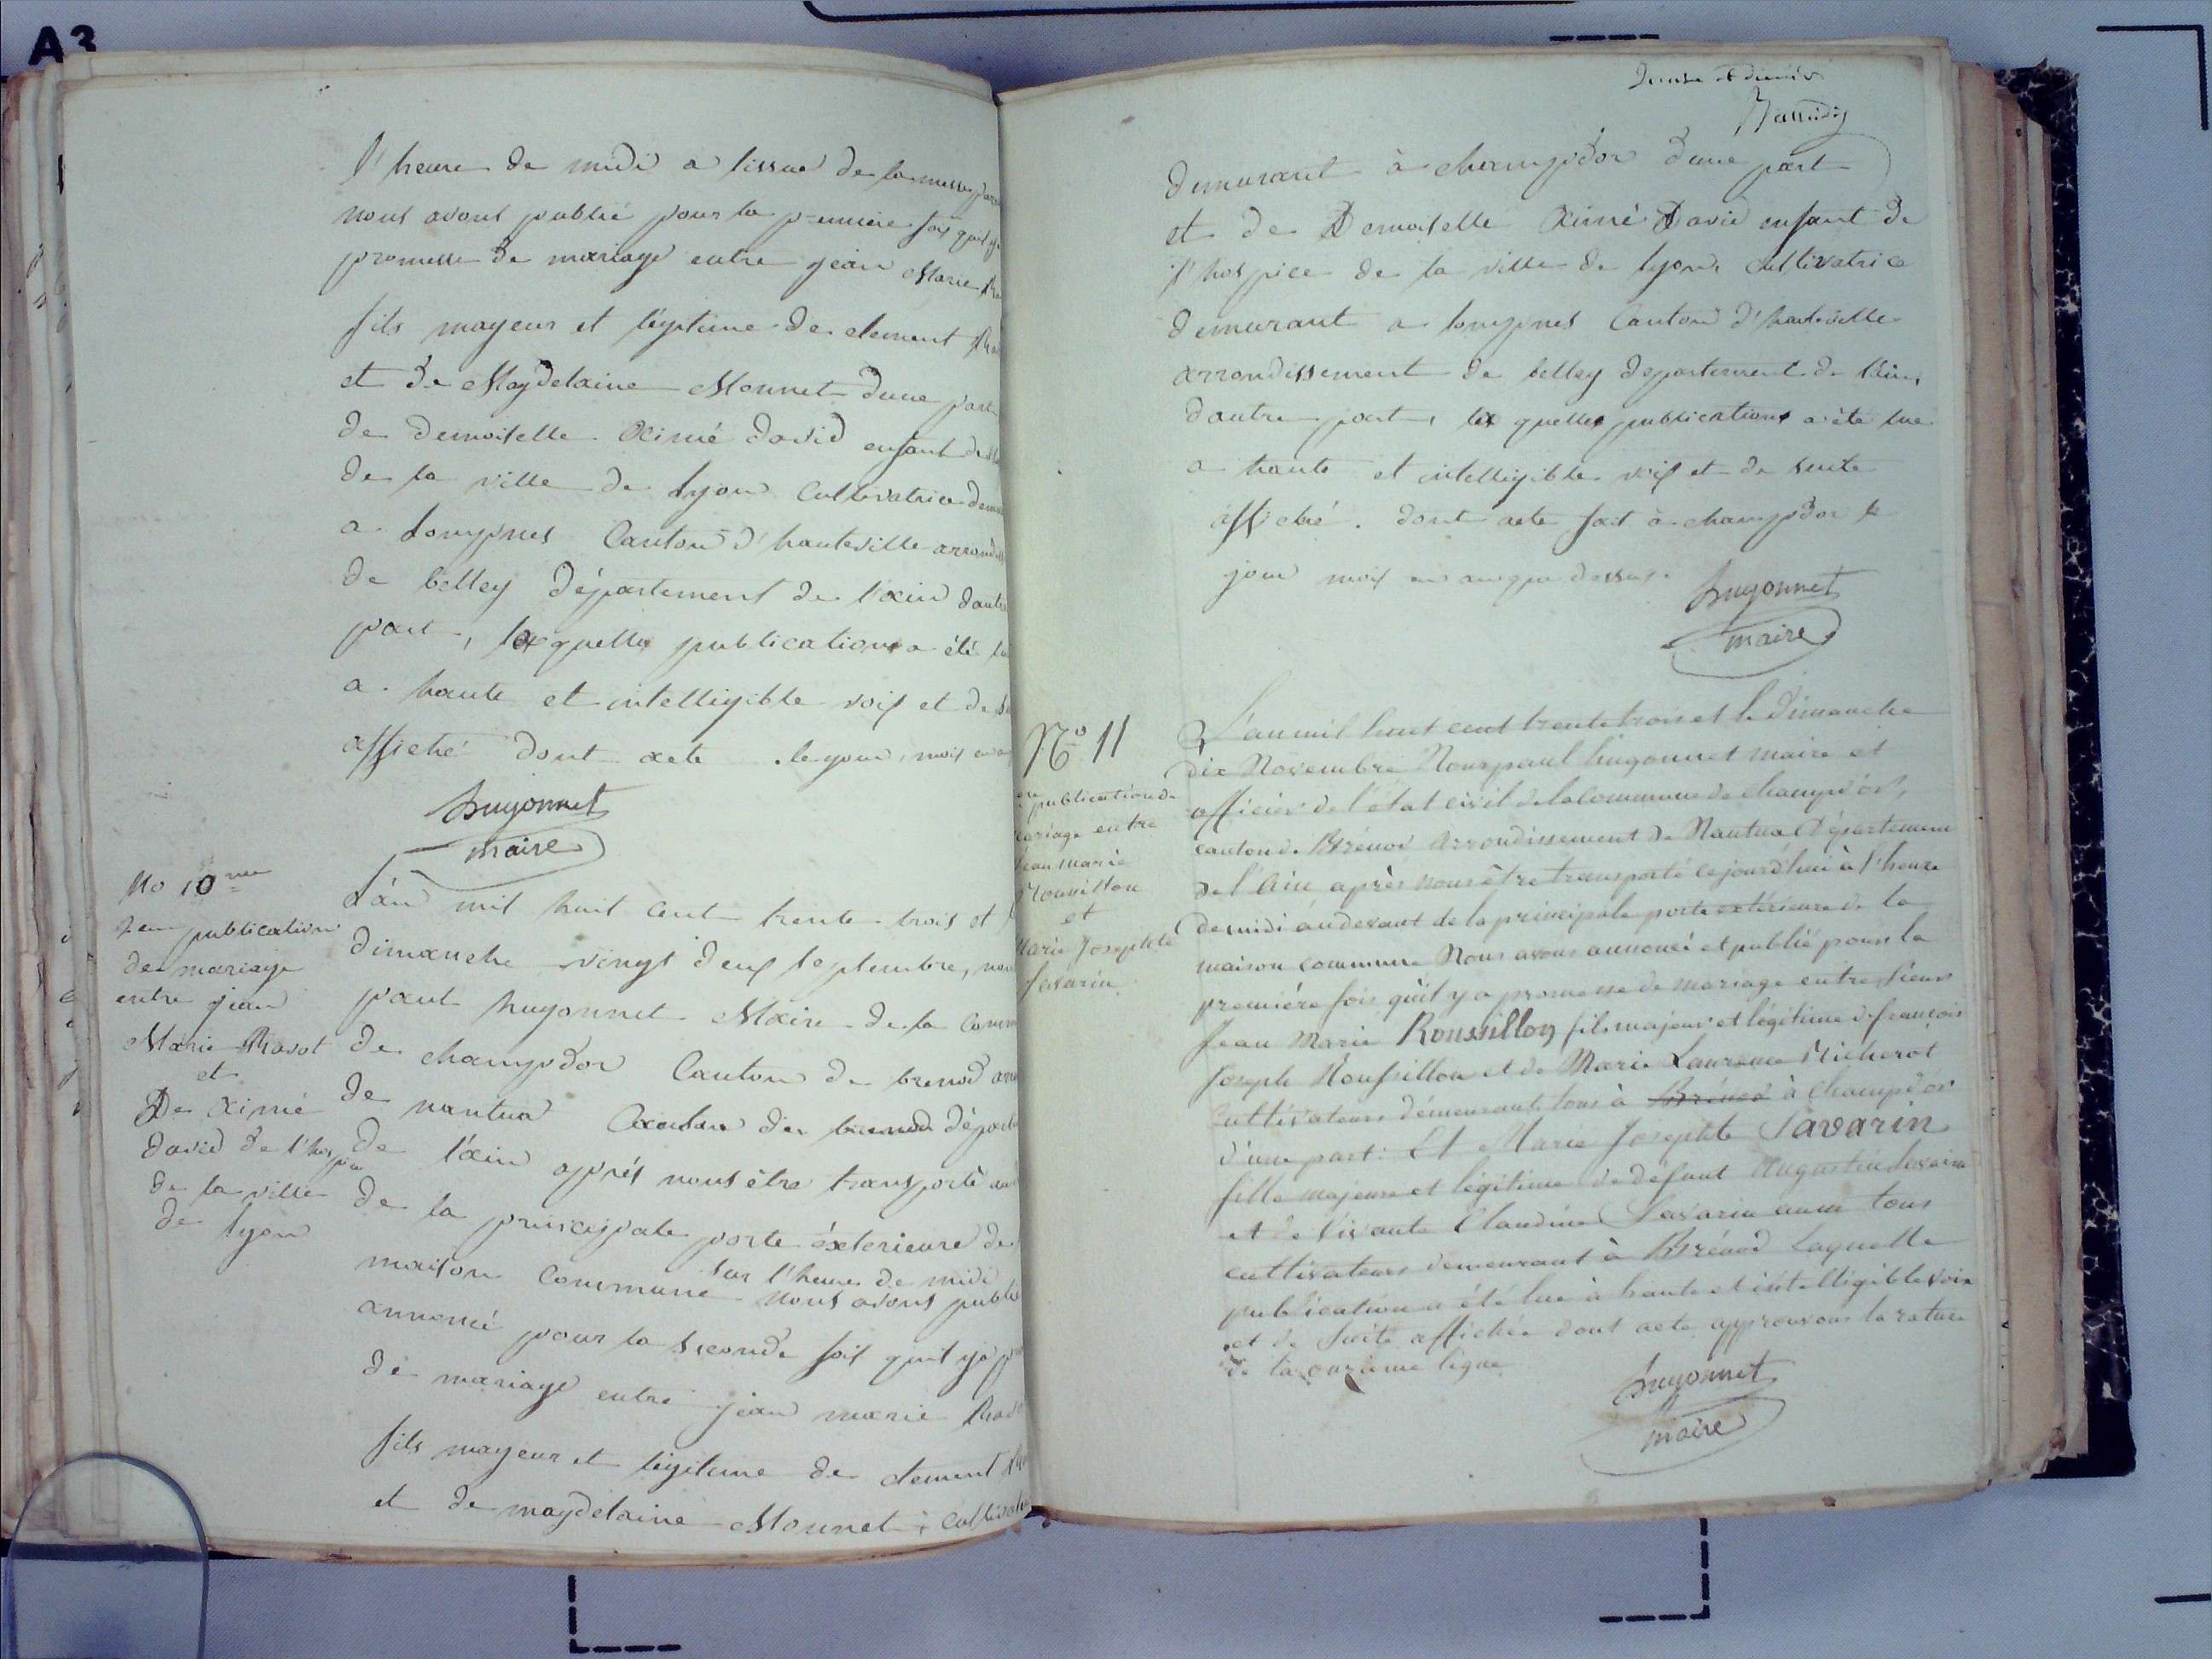 A3
l'heure de midi a lissue de la messe
nous avons publié pour la premiere fois quil
promesse de mariage entre jean Marie
fils mayeur et légitime de clement
et de Magdelaine Monnet dune part
de demoiselle Aimé david enfant de
de la ville de lyon Cultivatrice
a longpnes Canton d'hauteville arrond
de belley département de l'ain dautre
part, laquelle publication a été
a haute et intelligible voix et de
affiché dont acte le jour, mois
hugonnet
maire
No 10
2em publication
de mariage
entre jean
Marie Ravot
et
De Aimé
david de l'hospice
de la ville
de lyon
L'an mil huit Cent trente trois et
dimanche vingt deux septembre, nous
paul hugonnet Maire de la Comm
de champdor Canton de brenod
de nantua Canton de brenod dépar
de l'ain apprés nous être transporté
de la principale porte éxterieure de
sur l'heure de midi
maison Commune nous avons publié
annoncé pour la seconde fois quil ya
de mariage entre jean marie
fils mayeur et légitime de clement
et de magdelaine Monnet
demurant à champdor dune part
et de Demoiselle Aimé David enfant de
l'hospice de la ville de lyon, cultivatrice
demurant a longpnes Canton d'hauteville
arrondissement de belley departement de l'ain,
dautre part, la quelle publication a été lue
a haute et intelligible voix et de suite
affiché. dont acte fait à champdor le
jour mois an que dessus.
hugonnet
maire
No 11
publication de
mariage entre
Jean marie
Roussillon
et
Marie Josephte
Savarin
L'an mil huit cent trente trois et le dimanche
dix Novembre Nous paul hugonnet maire et
officier de l'état civil de la commune de Champd'or,
canton de Brénod Arrondissement de Nantua Département
de l'Ain après nous être transporté cejourd'hui à l'heure
de midi au devant de la principale porte extérieure de la
maison commune Nous avons annoncé et publié pour la
première fois qu'il y a promesse de mariage entre sieur
Jean Marie Roussillon fils majeur et légitime de françois
Joseph Roussillon et de Marie Laurence Micherot
Cultivateurs demeurant tous à Brénod à Champd'or
d'une part: Et Marie Josephte Savarin
fille majeure et légitime de défunt Augustin Savarin
et de vivante Claudine Savarin tous
cultivateurs demeurant à Brénod Laquelle
publication a été lue à haute et intelligible voix
et de suite affichée dont acte approuvons la rature
de la onzieme ligne
hugonnet
maire